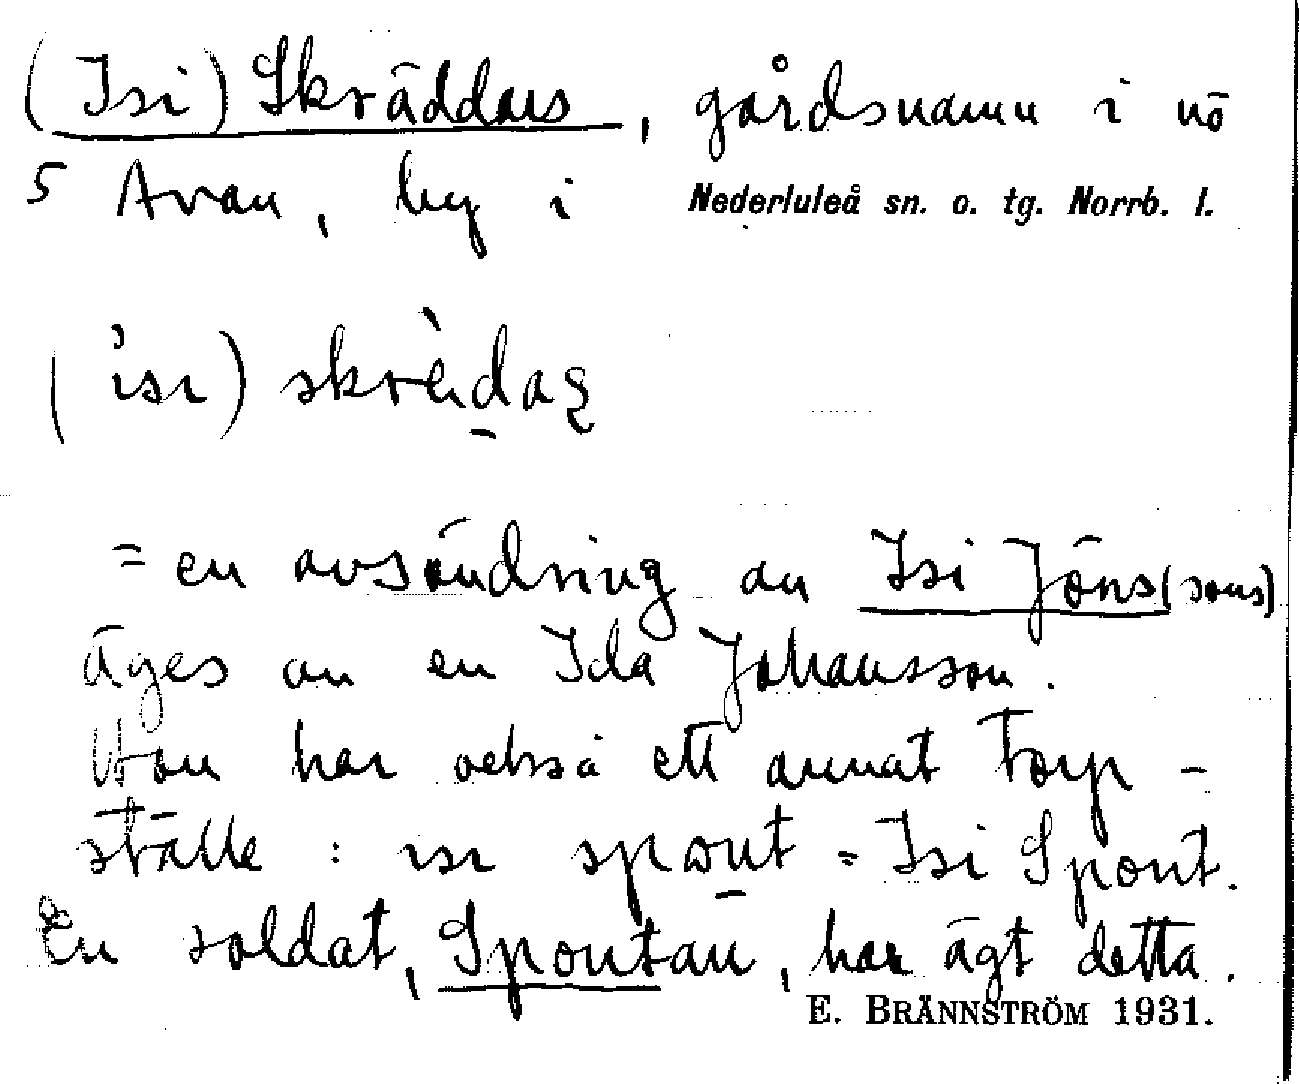 (Isi) Skräddars, gårdsnamn i nö
5 Avan, by i Nederluleå sn. o. tg. Norrb. l.
(isı)
= en avsöndring av Isi Jöns(sons)
äges av en Ida Johansson.
Hon har också ett annat torp-
ställe : ısı spɷnt = Isi Spont.
En soldat, Spontan, har ägt detta.
E. BRÄNNSTRÖM 1931.